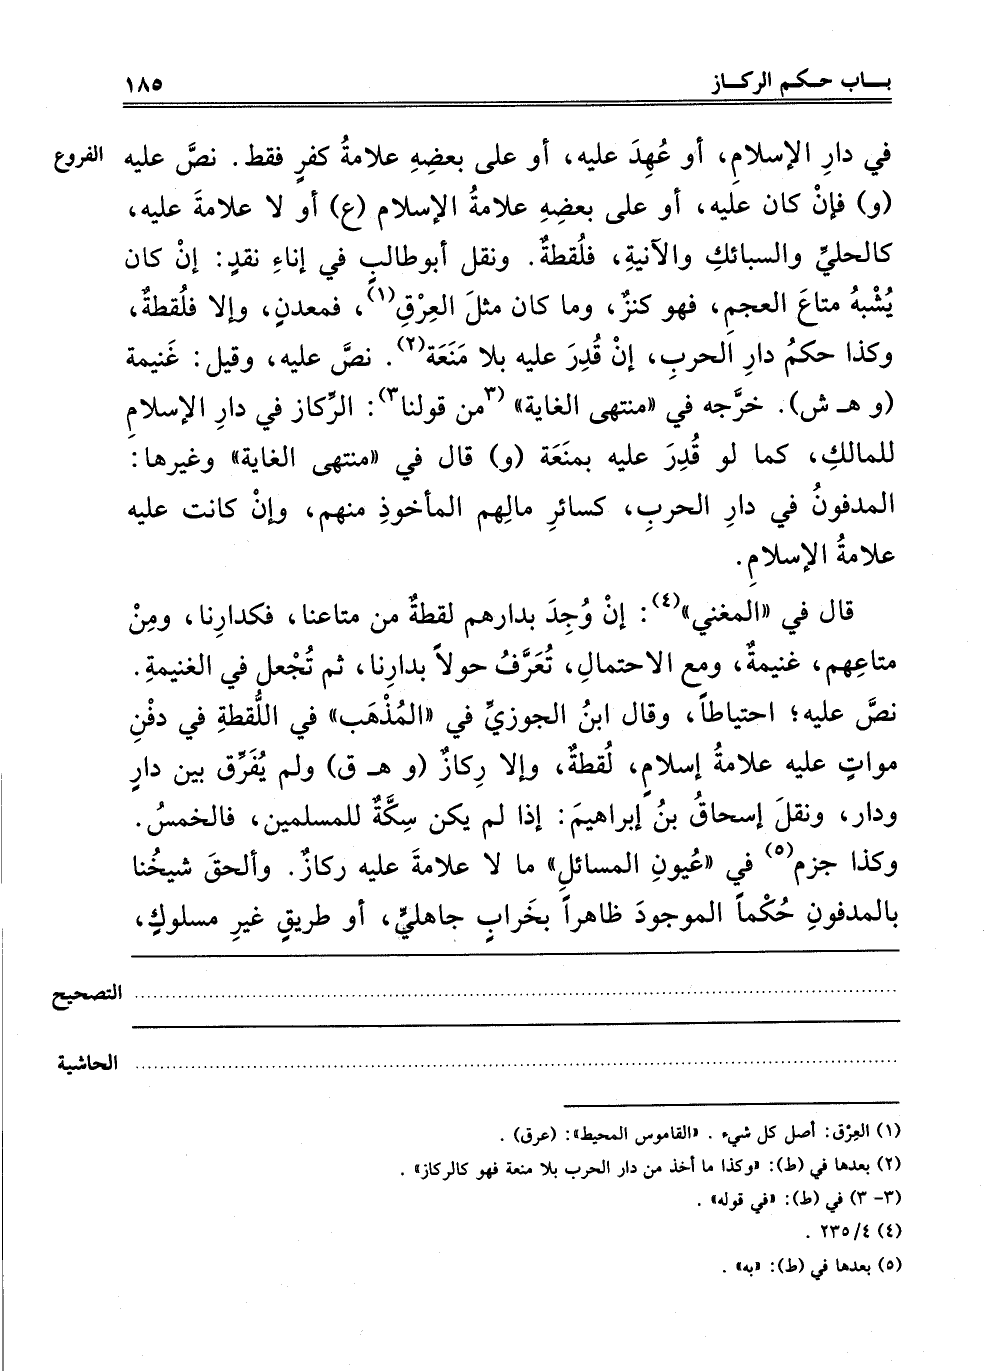 باب حكم الركاز ١٨٥
في دارِ الإسلامِ، أو عُهِدَ عليه، أو على بعضِهِ علامةُ كفرٍ فقط. نصَّ عليه الفروع
(و) فإنْ كان عليه، أو على بعضِهِ علامةُ الإسلام (ع) أو لا علامةَ عليه،
كالحليِّ والسبائكِ والآنيةِ، فلُقطةٌ. ونقل أبوطالبٍ في إناءِ نقدٍ: إنْ كان
يُشْبهُ متاعَ العجمِ، فهو كنزٌ، وما كان مثلَ العِرْقِ(١)، فمعدنٍ، وإلا فلُقطةٌ،
وكذا حكمُ دارِ الحربِ، إنْ قُدِرَ عليه بلا مَنَعَة(٢). نصَّ عليه، وقيل: غَنيمة
(و هـ ش). خرَّجه في «منتهى الغاية» (٣من قولنا٣): الرِّكاز في دارِ الإسلامِ
للمالكِ، كما لو قُدِرَ عليه بمنَعَة (و) قال في «منتهى الغاية» وغيرها:
المدفونُ في دارِ الحربِ، كسائرِ مالِهم المأخوذِ منهم، وإنْ كانت عليه
علامةُ الإسلامِ.
قال في «المغني»(٤): إنْ وُجِدَ بدارهم لقطةٌ من متاعنا، فكدارِنا، ومِنْ
متاعِهم، غنيمةٌ، ومع الاحتمالِ، تُعَرَّفُ حولاً بدارِنا، ثم تُجْعل في الغنيمةِ.
نصَّ عليه؛ احتياطاً، وقال ابنُ الجوزيِّ في «المُذْهَب» في اللُّقطةِ في دفْنِ
مواتٍ عليه علامةُ إسلامٍ، لُقطةٌ، وإلا رِكازٌ (و هـ ق) ولم يُفَرِّق بين دارٍ
ودار، ونقلَ إسحاقُ بنُ إبراهيمَ: إذا لم يكن سِكَّةٌ للمسلمين، فالخمسُ.
وكذا جزم(٥) في «عُيونِ المسائلِ» ما لا علامةَ عليه ركازٌ. وألحقَ شيخُنا
بالمدفونِ حُكْماً الموجودَ ظاهراً بخَرابٍ جاهليٍّ، أو طريقٍ غيرِ مسلوكٍ،
التصحيح
الحاشية
(١) العِرْق: أصل كل شيء . «القاموس المحيط»: (عرق) .
(٢) بعدها في (ط): «وكذا ما أخذ من دار الحرب بلا منعة فهو كالركاز» .
(٣- ٣) في (ط): «في قوله» .
(٤) ٢٣٥/٤ .
(٥) بعدها في (ط): «به» .